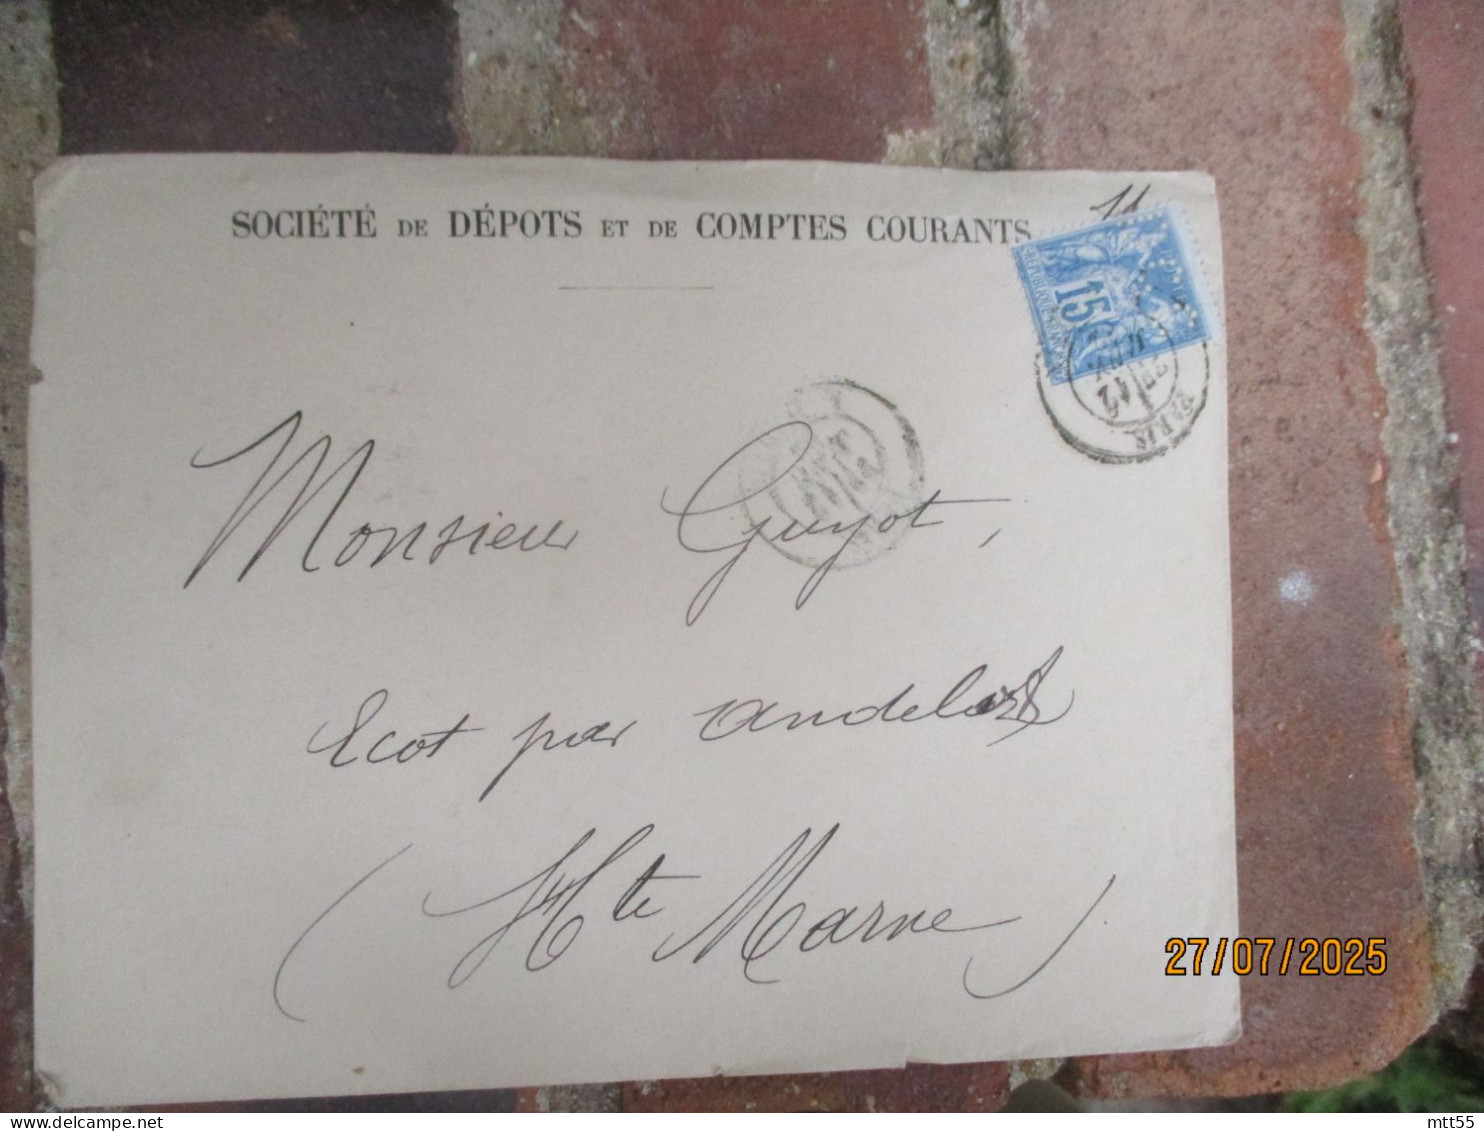 SOCIÉTÉ DE DÉPOTS ET DE COMPTES COURANTS
15
PARIS
Monsieur Guyot,
Ecot par Andelot
(Hte Marne)
27/07/2025
mtt55